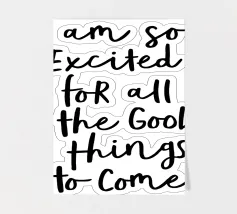 am so
Excited
foR all
the Good
things
to Come